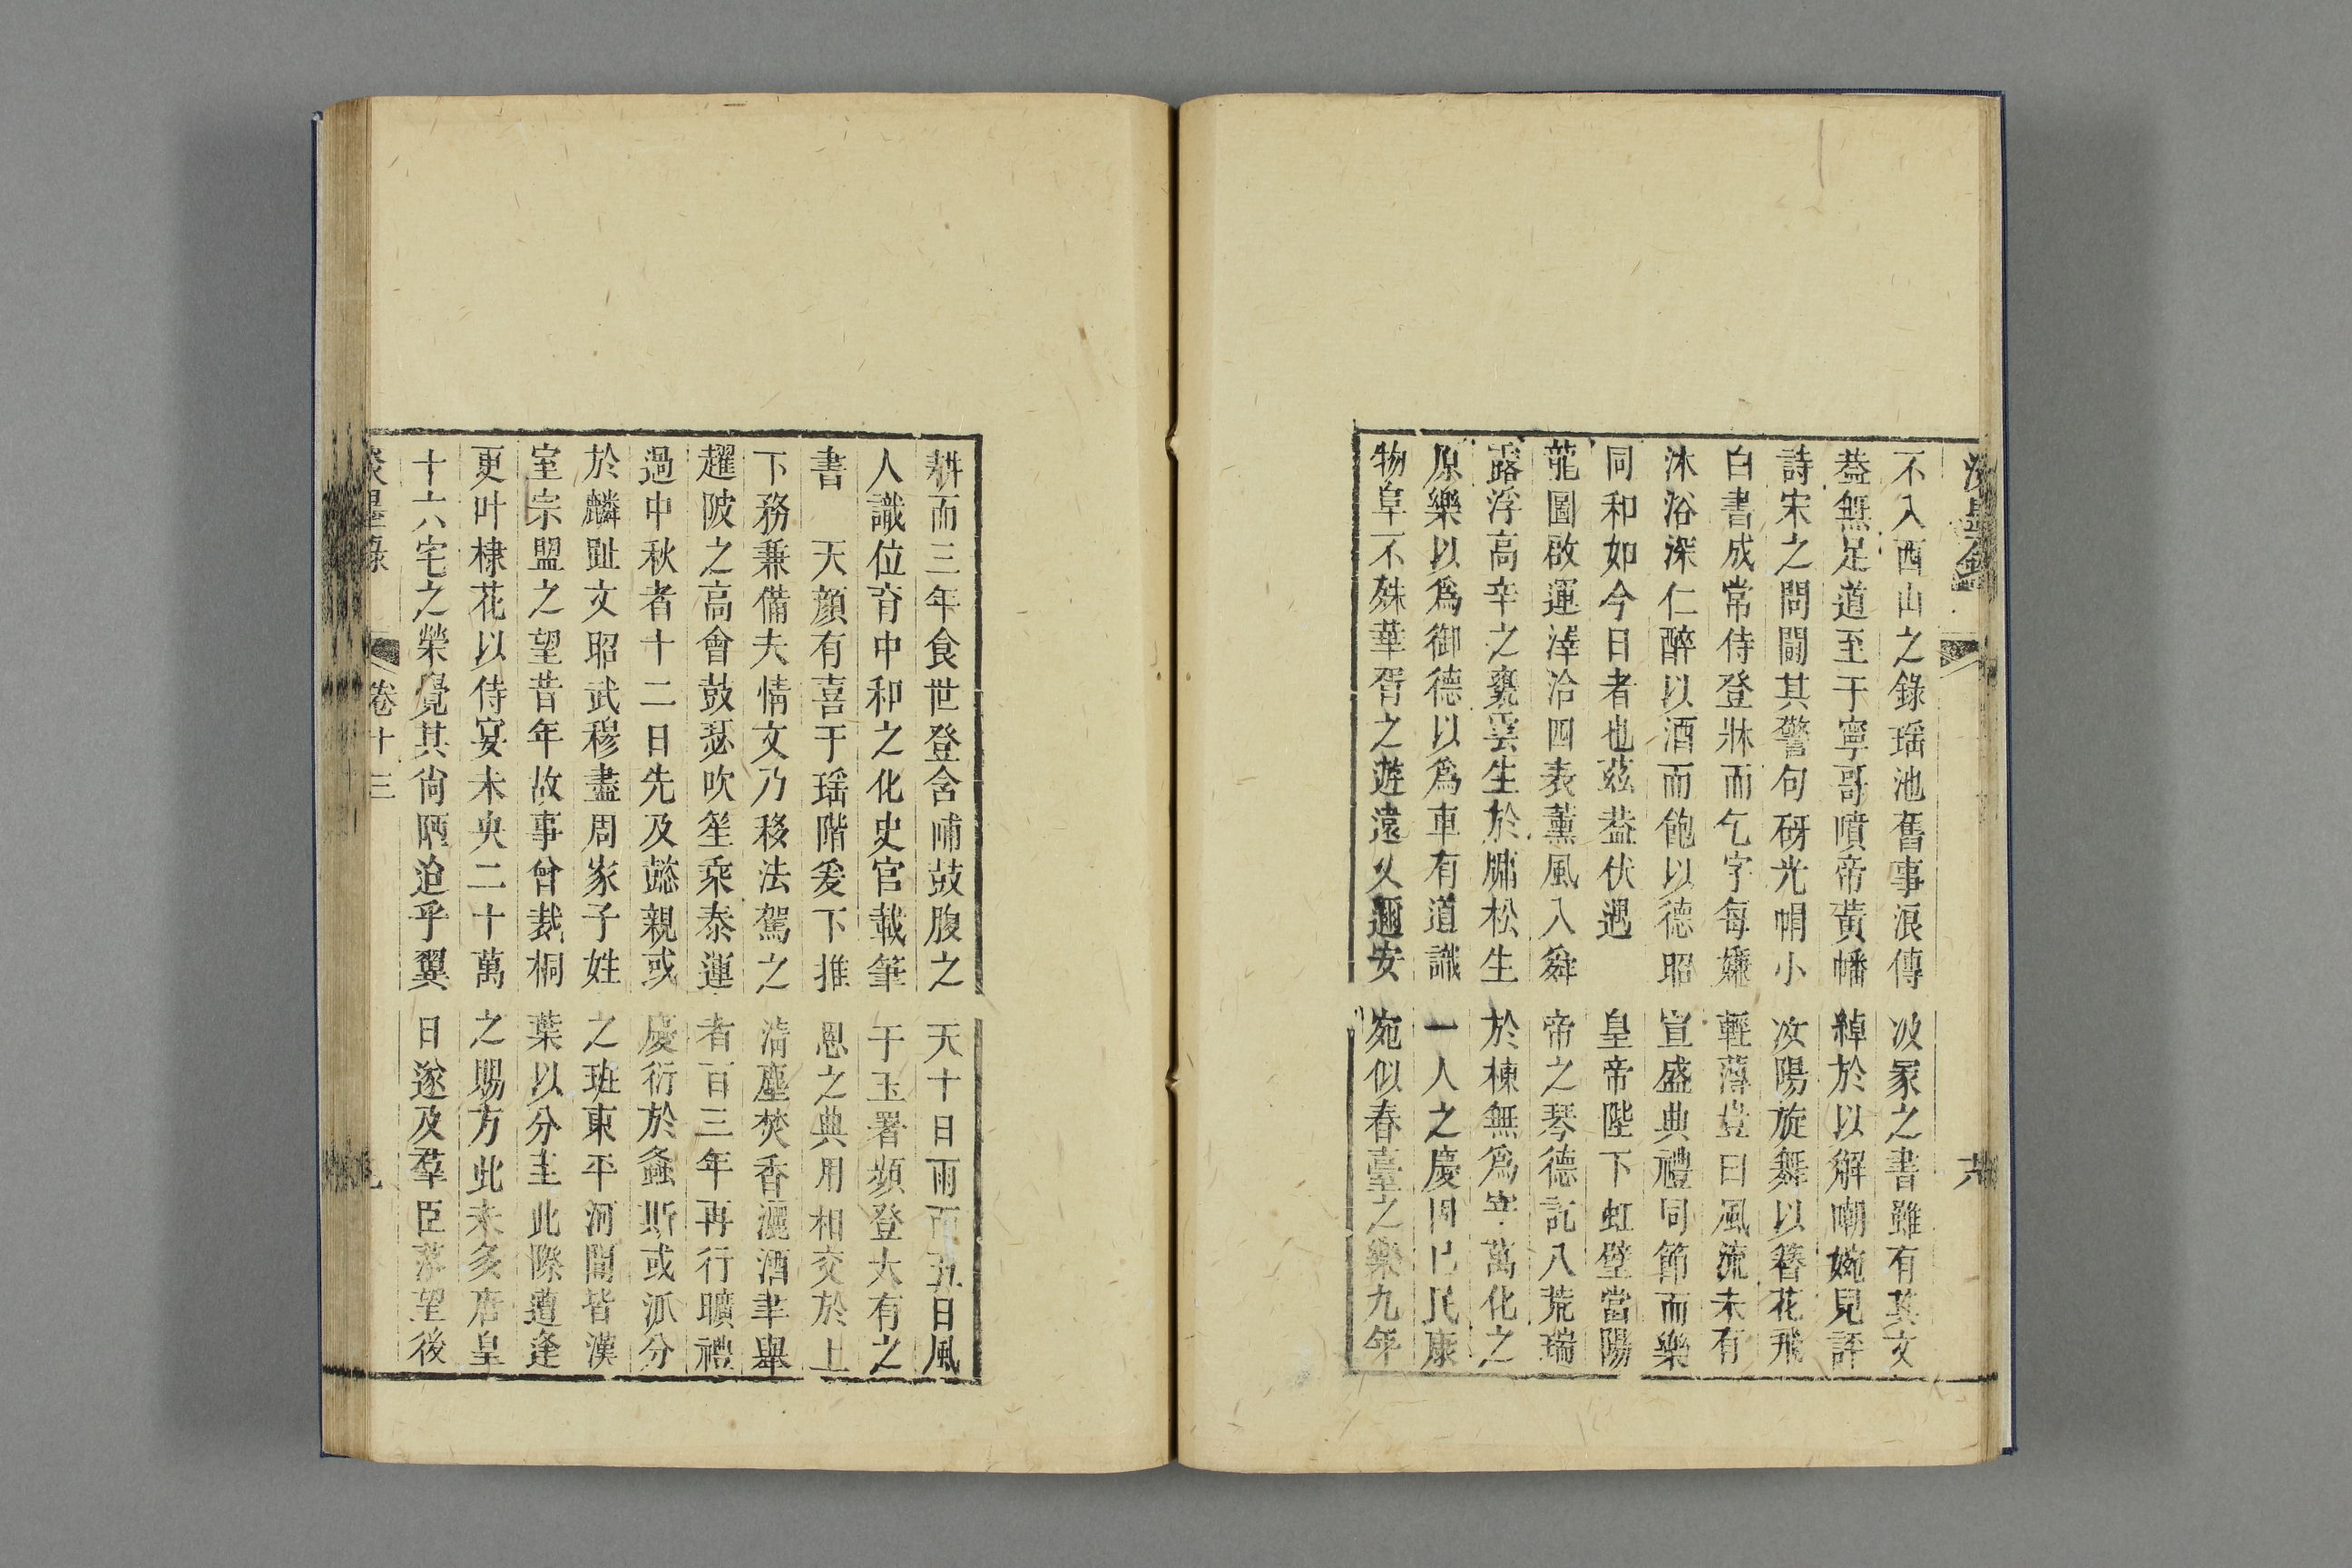 淡墨錄
六
不入酉山之錄瑶池舊事浪傳汲冢之書雖有其文
葢無足道至于寧哥噴帝黃幡綽於以解嘲婉兒評
詩宋之問鬪其警句砑光帽小汝陽旋舞以簪花飛
白書成常侍登牀而乞字每嫌輕薄豈曰風流未有
沐浴深仁醉以酒而飽以德昭宣盛典禮同節而樂
同和如今日者也茲葢伏遇皇帝陛下虹璧當陽
龍圖啟運澤洽四表薰風入舜帝之琴德記八荒瑞
露浮高辛之甕雲生於牖松生於棟無爲宰萬化之
原樂以爲御德以爲車有道識一人之慶固已民康
物阜不殊華胥之遊遠乂邇安宛似春臺之樂九年
耕而三年食世登含哺鼓腹之天十日雨而五日風
人識位育中和之化史官載筆于玉署頻登大有之
書 天顔有喜于瑶階爰下推恩之典用相交於上
下務兼備夫情文乃移法駕之清塵焚香灑酒聿舉
趯陂之高會鼓瑟吹笙乘泰運者百三年再行曠禮
過中秋者十二日先及懿親或慶衍於螽斯或派分
於麟趾文昭武穆盡周家子姓之班東平河間皆漢
室宗盟之望昔年故事曾裁桐葉以分圭此際遭逢
更叶棣花以侍宴未央二十萬之賜方此未多唐皇
十六宅之榮覺其尙陋迨乎翼日遂及羣臣落望後
淡墨錄
卷十三